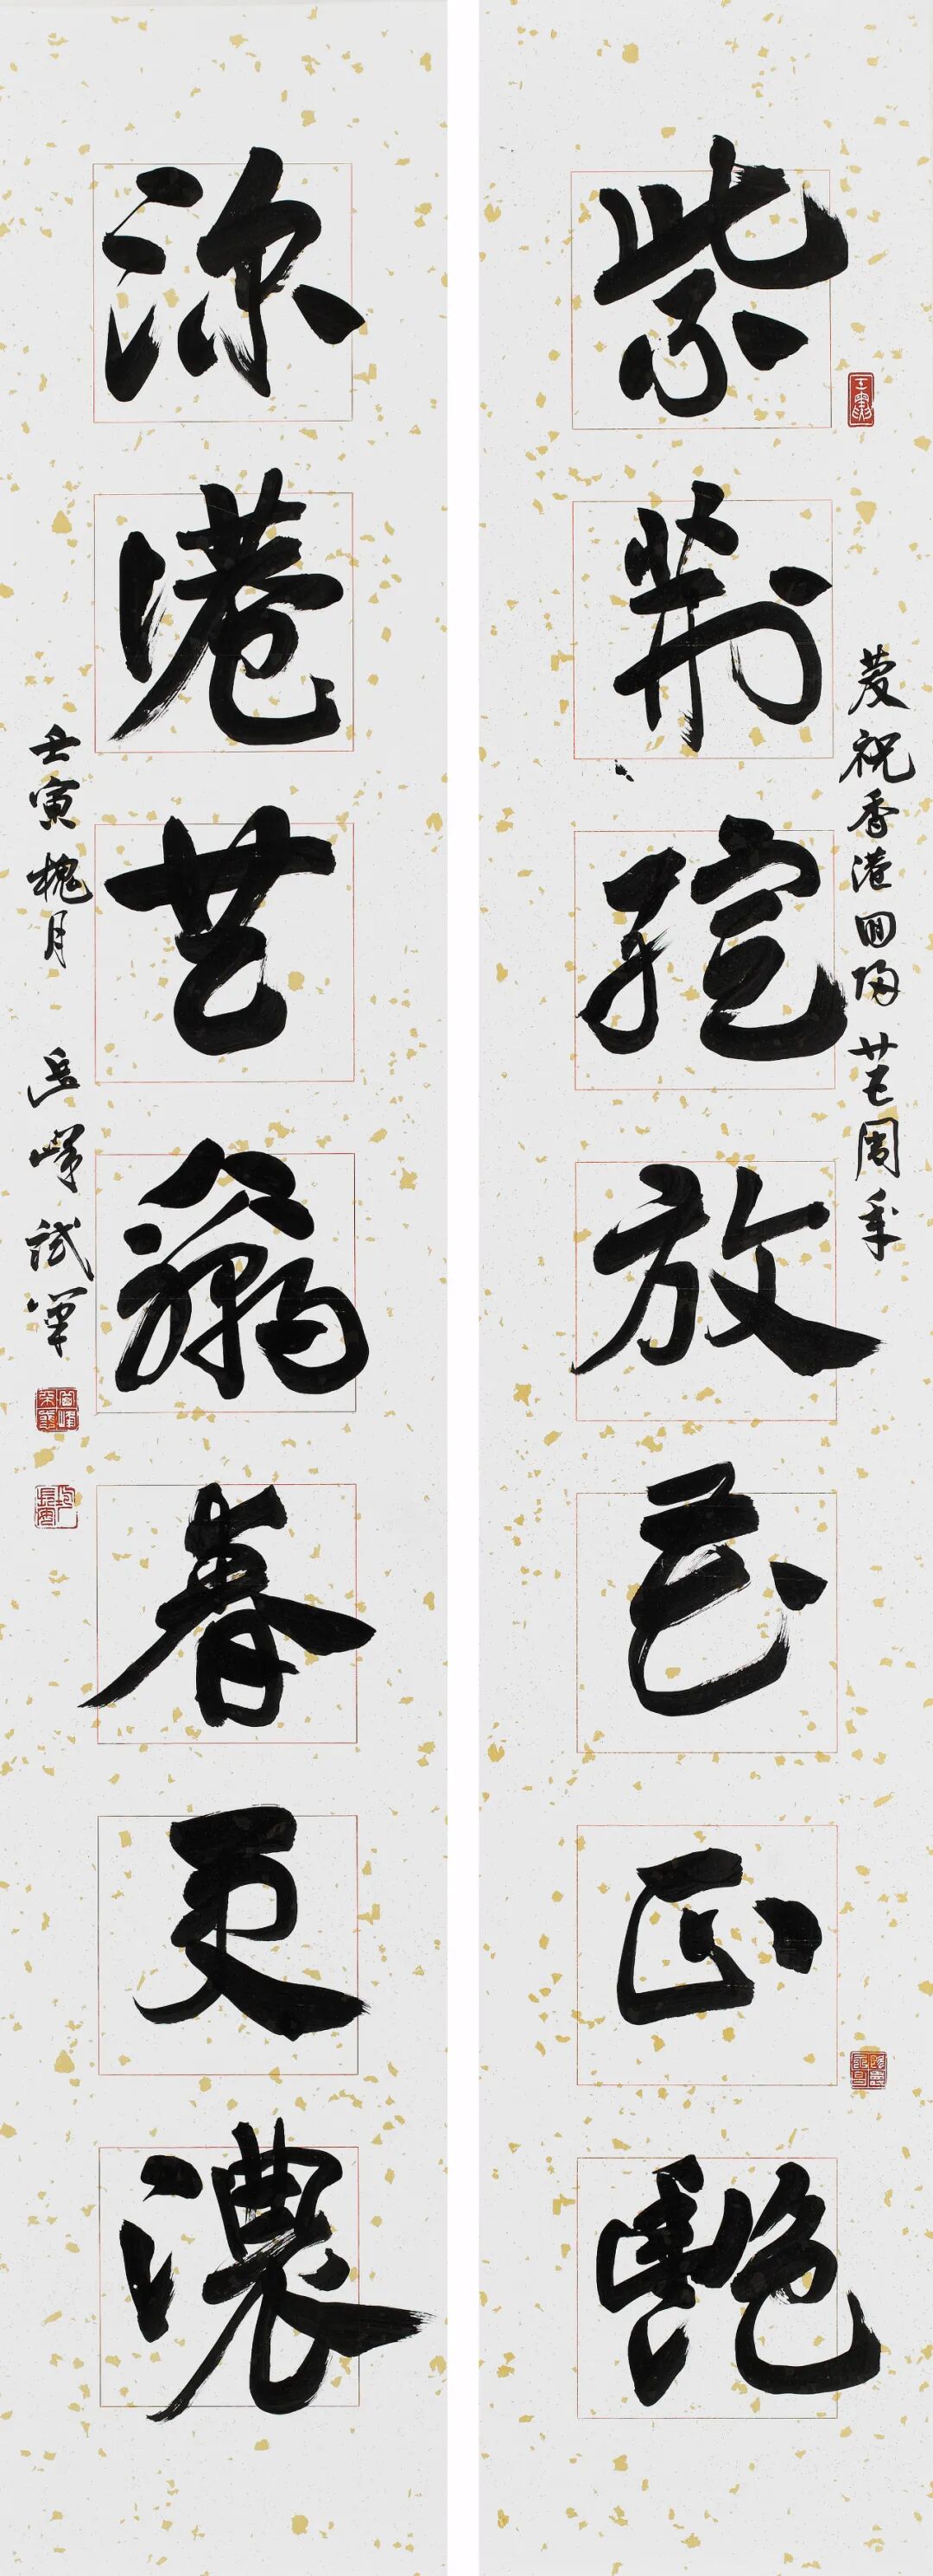 慶祝香港回歸廿五周年
紫荊綻放花正艷
深港芸春更濃
壬寅槐月 岳峰試筆